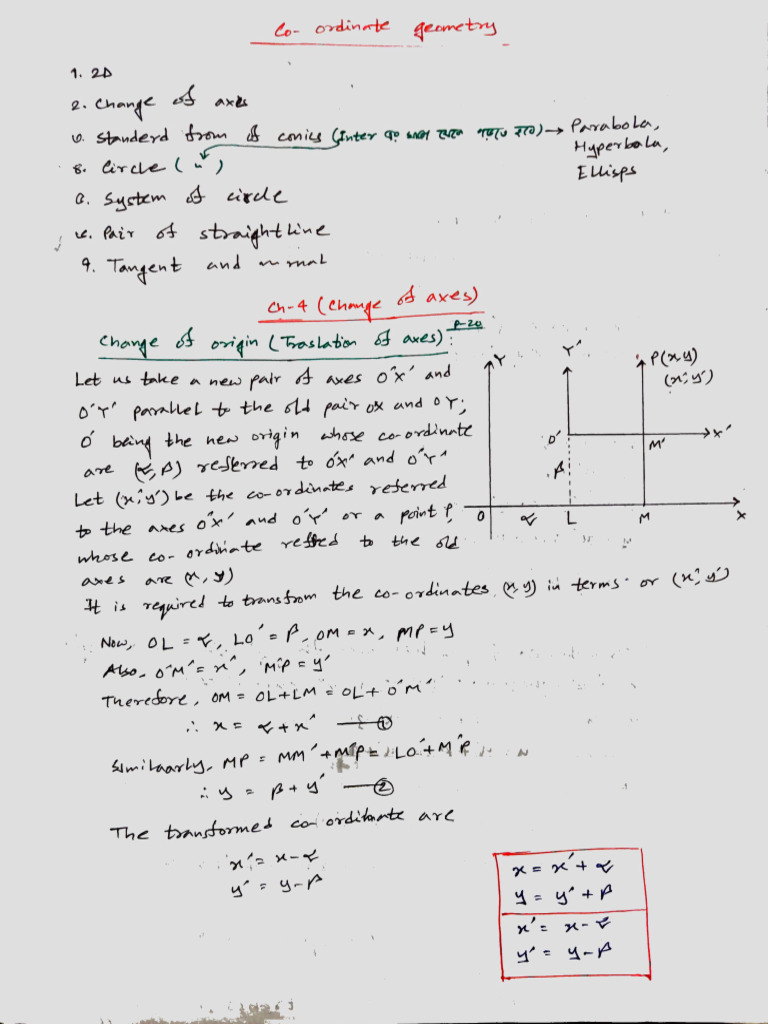 Co-ordinate geometry
1. 2D
2. Change of axes
৩. Standerd from of conics (Inter এর থেকে পড়তে হবে) → Parabola,
Hyperbola,
Ellisps
৪. Circle ( " )
৫. System of circle
৬. Pair of straight line
৭. Tangent and normal
Ch-4 (Change of axes)
Change of origin (Traslation of axes) : P-20
Let us take a new pair of axes O'X' and
O'Y' parallel to the old pair OX and OY;
O' being the new origin whose co-ordinate
are (α, β) referred to O'X' and O'Y'
Let (x', y') be the co-ordinates referred
to the axes O'X' and O'Y' or a point P,
whose co-ordinate reffred to the old
axes are (x, y)
It is required to transfrom the co-ordinates (x, y) in terms or (x', y')
Y
Y'
P(x, y)
(x', y')
O'
M'
X'
β
O
α
L
M
X
Now, OL = α, LO' = β, OM = x, MP = y
Also, O'M' = x', M'P = y'
Therefore, OM = OL + LM = OL + O'M'
∴ x = α + x' — ①
Similaarly, MP = MM' + M'P = LO' + M'P
∴ y = β + y' — ②
The transformed co-ordinate are
x' = x - α
y' = y - β
x = x' + α
y = y' + β
x' = x - α
y' = y - β